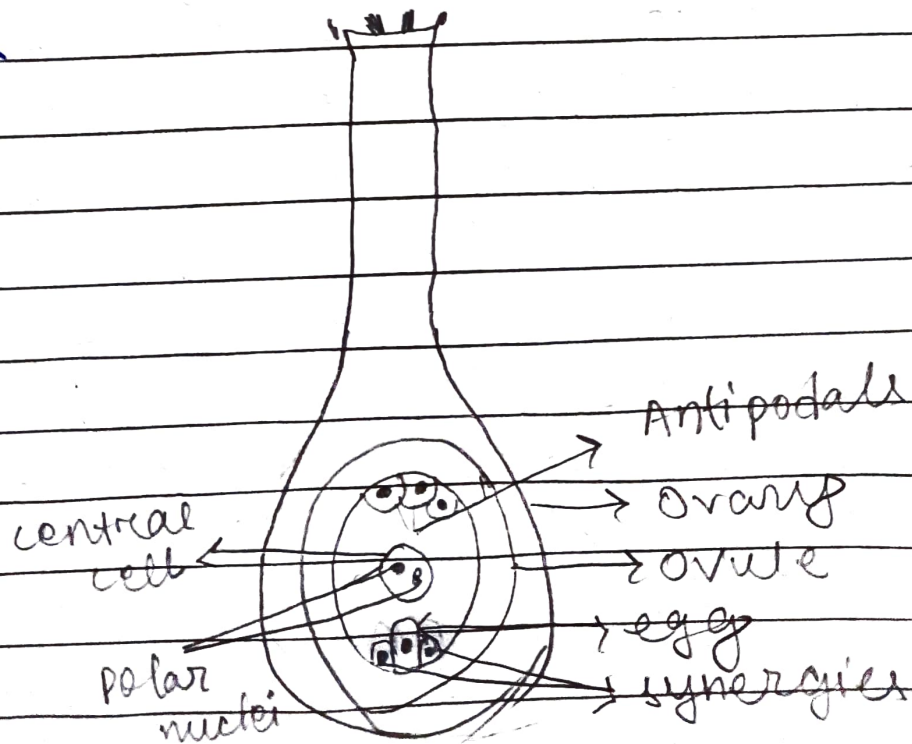 Antipodals
ovary
central
cell
ovule
egg
synergies
polar
nuclei